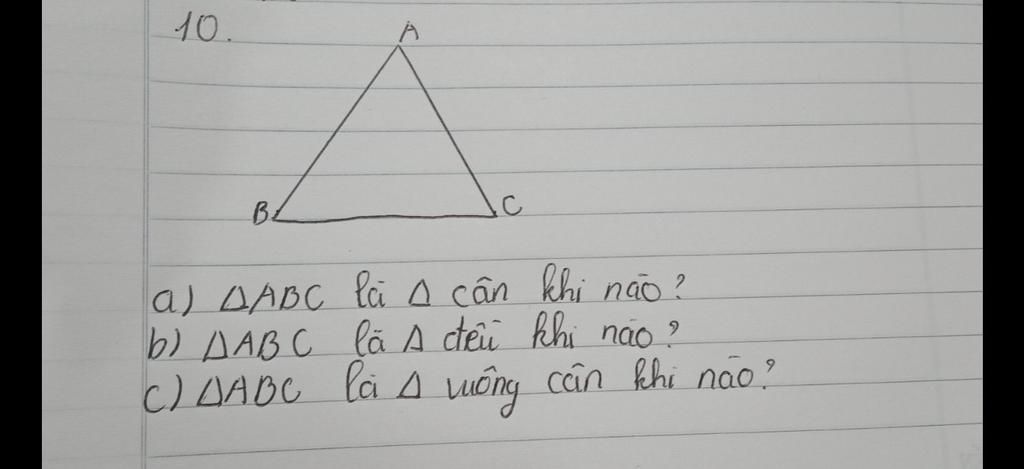 10.
A
B
C
a) ΔABC là Δ cân khi nào?
b) ΔABC là Δ đều khi nào?
c) ΔABC là Δ vuông cân khi nào?